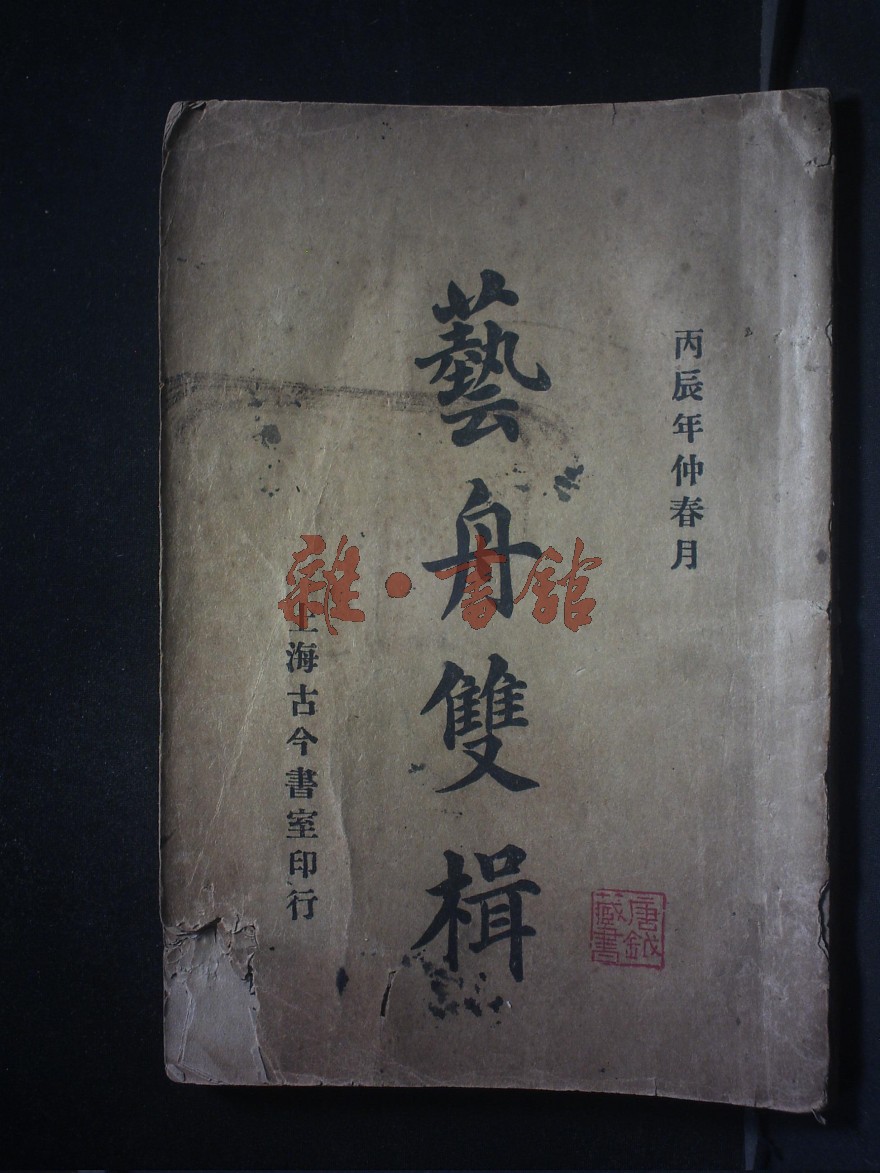 丙辰年仲春月
藝舟雙楫
上海古今書室印行
唐鉞
藏書
雜·書館